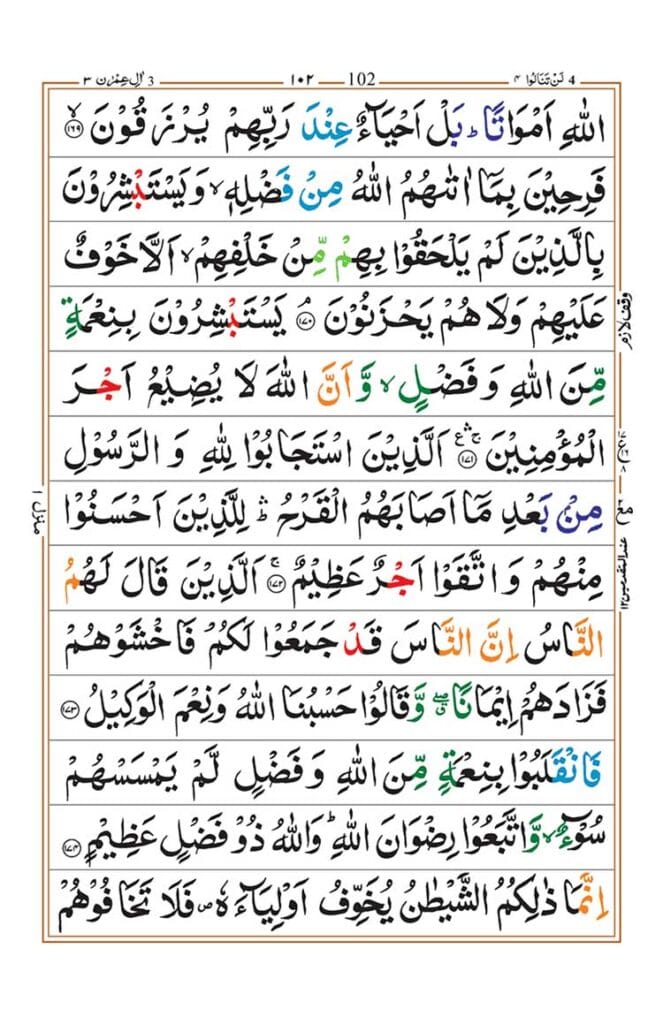 4 لَنْ تَنَالُوا ۴ ۱۰۲ 102 3 اٰلِ عِمْرٰن ۳
اللّٰهِ اَمْوَاتًا ؕ بَلْ اَحْيَآءٌ عِنْدَ رَبِّهِمْ يُرْزَقُوْنَ ۙ‏﴿۱۶۹﴾
فَرِحِيْنَ بِمَاۤ اٰتٰٮهُمُ اللّٰهُ مِنْ فَضْلِهٖ ۙ وَيَسْتَبْشِرُوْنَ
بِالَّذِيْنَ لَمْ يَلْحَقُوْا بِهِمْ مِّنْ خَلْفِهِمْ ۙ اَلَّا خَوْفٌ
عَلَيْهِمْ وَلَا هُمْ يَحْزَنُوْنَ ۘ‏﴿۱۷۰﴾ يَسْتَبْشِرُوْنَ بِنِعْمَةٍ
وقف لازم
مِّنَ اللّٰهِ وَ فَضْلٍ ۙ وَّ اَنَّ اللّٰهَ لَا يُضِيْعُ اَجْرَ
الْمُؤْمِنِيْنَ ۛۚ ع ﴿۱۷۱﴾ اَلَّذِيْنَ اسْتَجَابُوْا لِلّٰهِ وَ الرَّسُوْلِ
مِنْۢ بَعْدِ مَاۤ اَصَابَهُمُ الْقَرْحُ ۛؕ لِلَّذِيْنَ اَحْسَنُوْا
منزل ۱
مِنْهُمْ وَ اتَّقَوْا اَجْرٌ عَظِيْمٌ ۚ‏﴿۱۷۲﴾ اَلَّذِيْنَ قَالَ لَهُمُ
النَّاسُ اِنَّ النَّاسَ قَدْ جَمَعُوْا لَكُمْ فَاخْشَوْهُمْ
فَزَادَهُمْ اِيْمَانًا ۖۗ وَّ قَالُوْا حَسْبُنَا اللّٰهُ وَنِعْمَ الْوَكِيْلُ ﴿۱۷۳﴾
فَانْقَلَبُوْا بِنِعْمَةٍ مِّنَ اللّٰهِ وَ فَضْلٍ لَّمْ يَمْسَسْهُمْ
سُوْٓءٌ ۙ وَّ اتَّبَعُوْا رِضْوَانَ اللّٰهِ ؕ وَاللّٰهُ ذُوْ فَضْلٍ عَظِيْمٍ ﴿۱۷۴﴾
اِنَّمَا ذٰلِكُمُ الشَّيْطٰنُ يُخَوِّفُ اَوْلِيَآءَهٗ ۪ فَلَا تَخَافُوْهُمْ